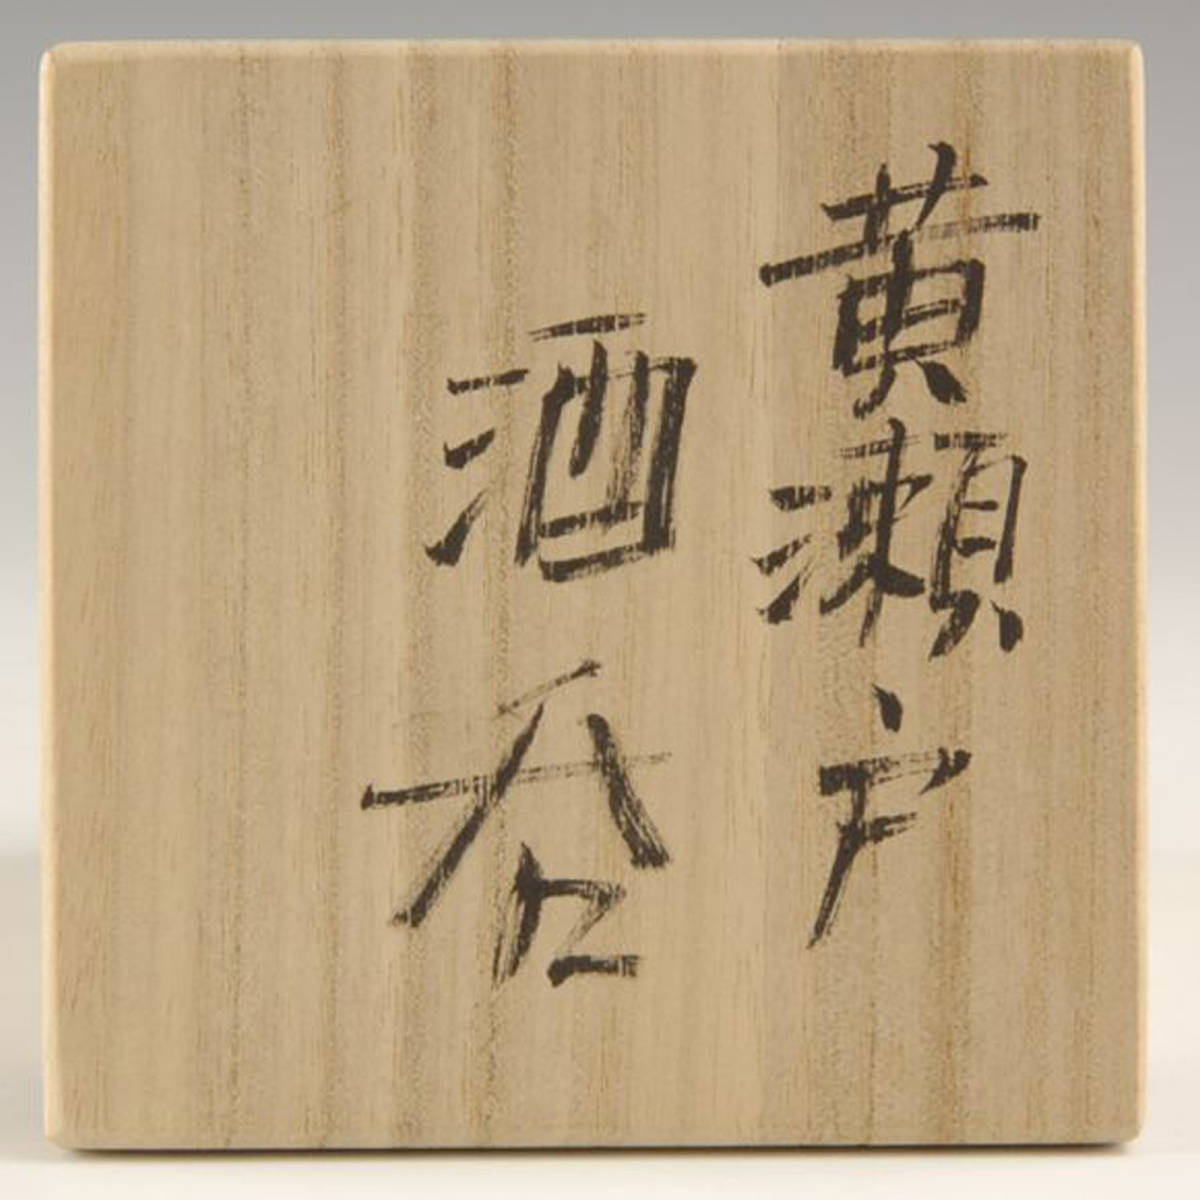 黄瀬戸
酒呑